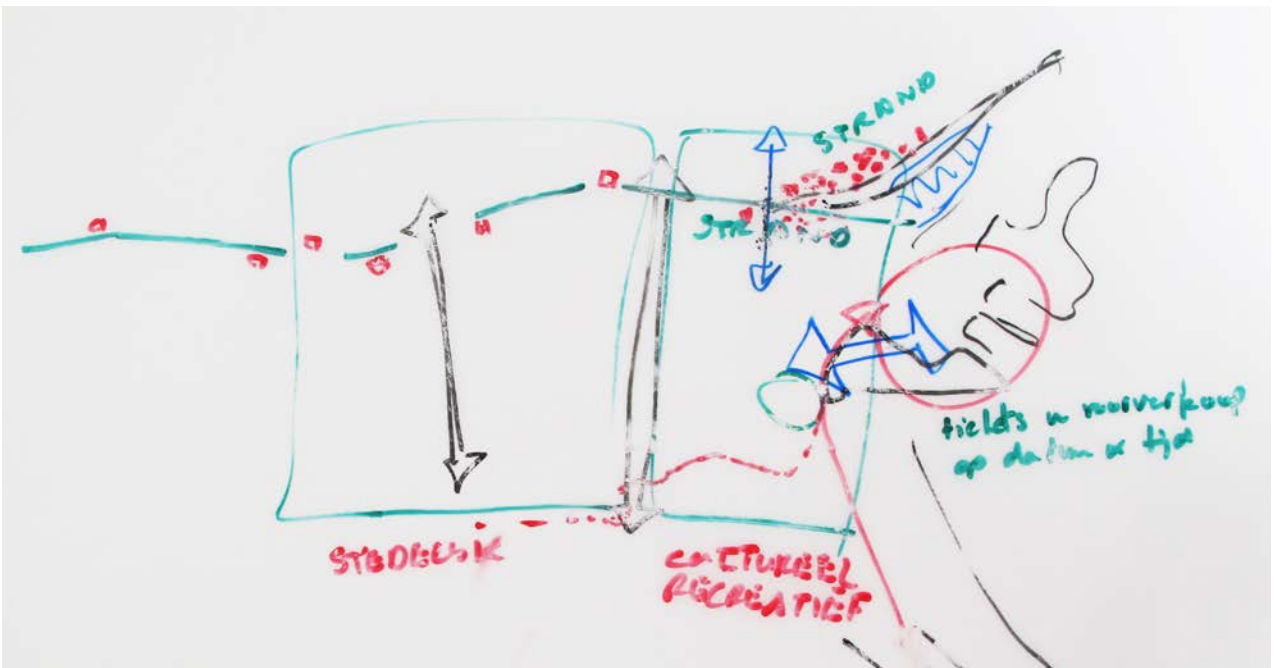 STRAND
STRAND
tickets in voorverkoop
op datum & tijd
STEDELIJK
CULTUREEL
RECREATIEF